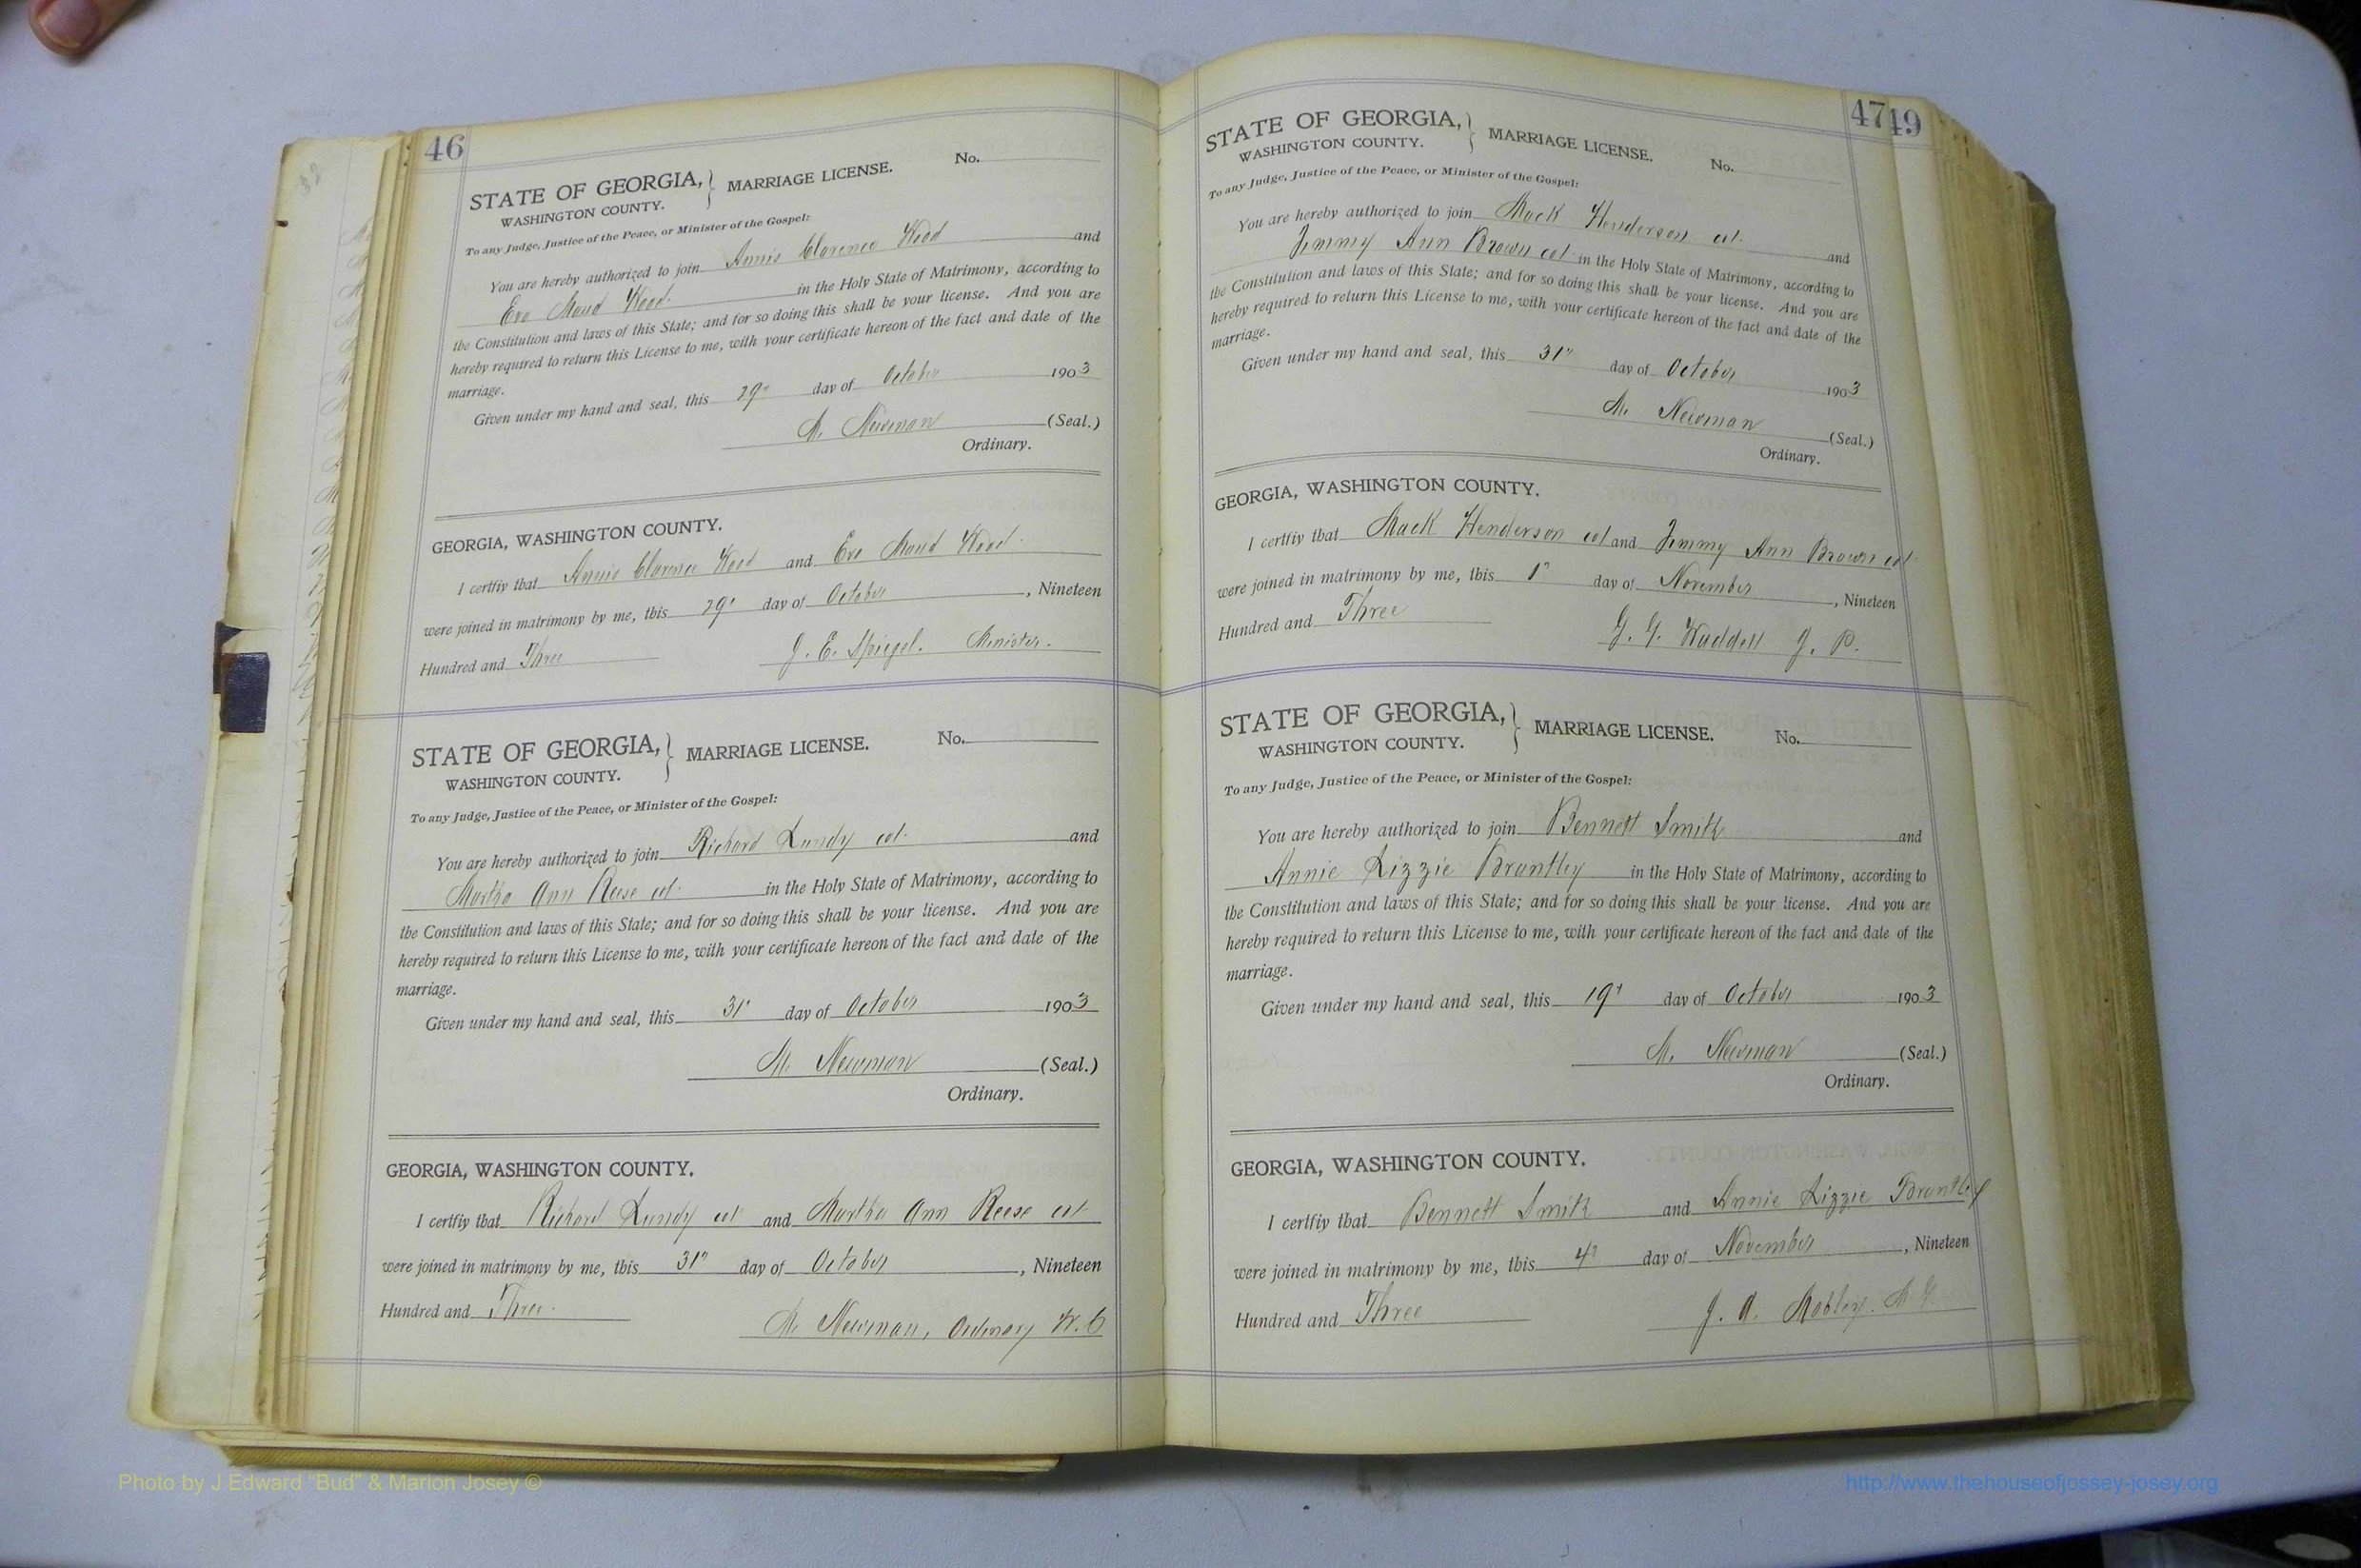 46
STATE OF GEORGIA,
WASHINGTON COUNTY.
MARRIAGE LICENSE.
No.
To any Judge, Justice of the Peace, or Minister of the Gospel:
You are hereby authorized to join Annis Clarence Wood and
Eva Maud Wood. in the Holy State of Matrimony, according to
the Constitution and laws of this State; and for so doing this shall be your license. And you are
hereby required to return this License to me, with your certificate hereon of the fact and date of the
marriage.
Given under my hand and seal, this 29" day of October 1903
M. Newman (Seal.)
Ordinary.
GEORGIA, WASHINGTON COUNTY.
I certfiy that Annis Clarence Wood and Eva Maud Wood.
were joined in matrimony by me, this 29" day of October, Nineteen
Hundred and Three
J. E. Spiegel. Minister.
STATE OF GEORGIA,
WASHINGTON COUNTY.
MARRIAGE LICENSE.
No.
To any Judge, Justice of the Peace, or Minister of the Gospel:
You are hereby authorized to join Richard Lundy col. and
Martha Ann Reese col. in the Holy State of Matrimony, according to
the Constitution and laws of this State; and for so doing this shall be your license. And you are
hereby required to return this License to me, with your certificate hereon of the fact and date of the
marriage.
Given under my hand and seal, this 31" day of October 1903
M. Newman (Seal.)
Ordinary.
GEORGIA, WASHINGTON COUNTY.
I certfiy that Richard Lundy col and Martha Ann Reese col
were joined in matrimony by me, this 31" day of October, Nineteen
Hundred and Three.
M. Newman, Ordinary W.C
47
49
STATE OF GEORGIA,
WASHINGTON COUNTY.
MARRIAGE LICENSE.
No.
To any Judge, Justice of the Peace, or Minister of the Gospel:
You are hereby authorized to join Mack Henderson col.
Jimmy Ann Brown col. in the Holy State of Matrimony, according to and
the Constitution and laws of this State; and for so doing this shall be your license. And you are
hereby required to return this License to me, with your certificate hereon of the fact and date of the
marriage.
Given under my hand and seal, this 31" day of October 1903
M. Newman (Seal.)
Ordinary.
GEORGIA, WASHINGTON COUNTY.
I certfiy that Mack Henderson col and Jimmy Ann Brown col.
were joined in matrimony by me, this 1" day of November, Nineteen
Hundred and Three
Waddell J. P.
STATE OF GEORGIA,
WASHINGTON COUNTY.
MARRIAGE LICENSE.
No.
To any Judge, Justice of the Peace, or Minister of the Gospel:
You are hereby authorized to join Bennett Smith and
Annie Lizzie Brantley in the Holy State of Matrimony, according to
the Constitution and laws of this State; and for so doing this shall be your license. And you are
hereby required to return this License to me, with your certificate hereon of the fact and date of the
marriage.
Given under my hand and seal, this 19" day of October 1903
M. Newman (Seal.)
Ordinary.
GEORGIA, WASHINGTON COUNTY.
I certfiy that Bennett Smith and Annie Lizzie Brantley
were joined in matrimony by me, this 4" day of November, Nineteen
Hundred and Three
J. A. Mobley. M.G.
Photo by J Edward "Bud" & Marion Josey ©
http://www.thehouseofjossey-josey.org